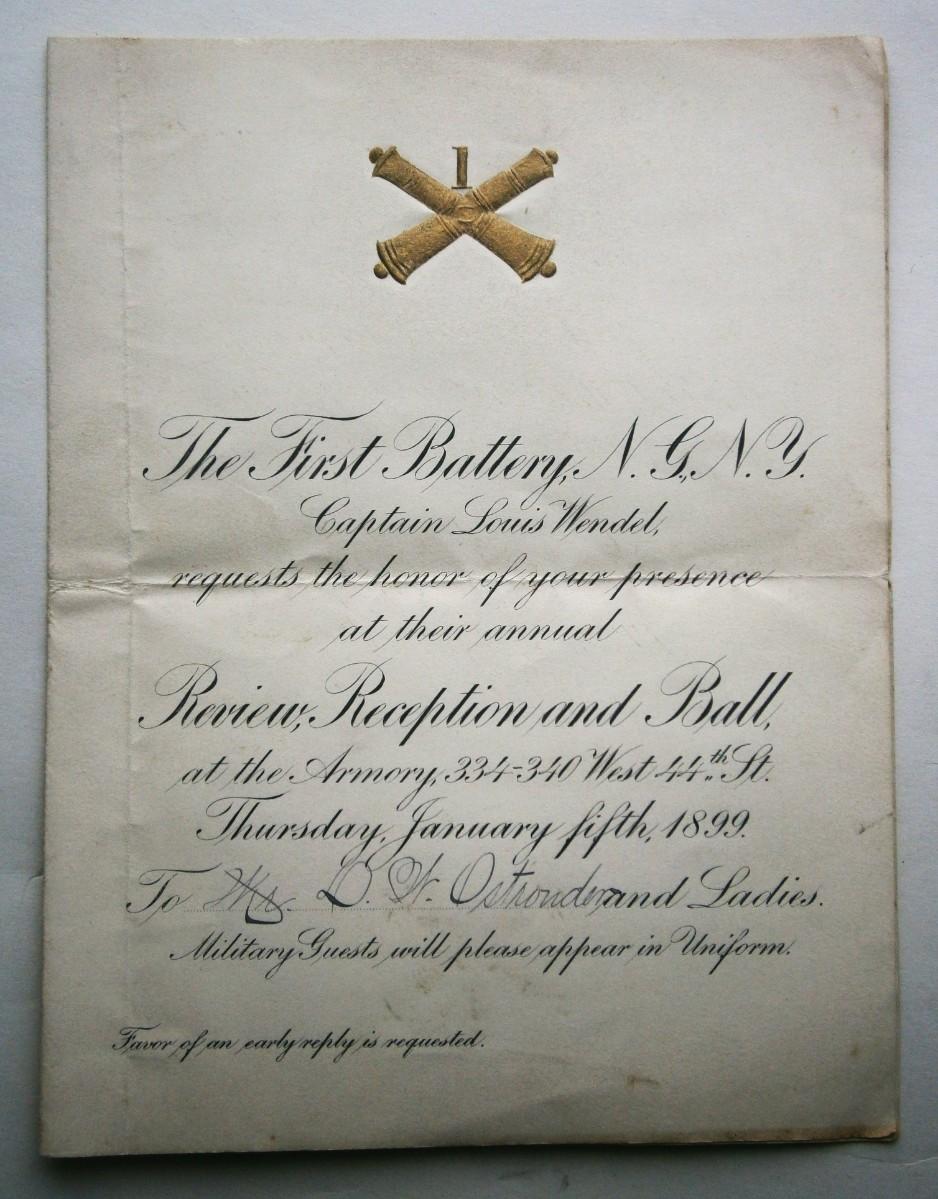 1
The First Battery, N. G., N. Y.
Captain Louis Wendel,
requests the honor of your presence
at their annual
Review, Reception and Ball,
at the Armory, 334-340 West 44th St.
Thursday, January fifth, 1899.
To Mr. D. W. Ostronder and Ladies.
Military Guests will please appear in Uniform.
Favor of an early reply is requested.